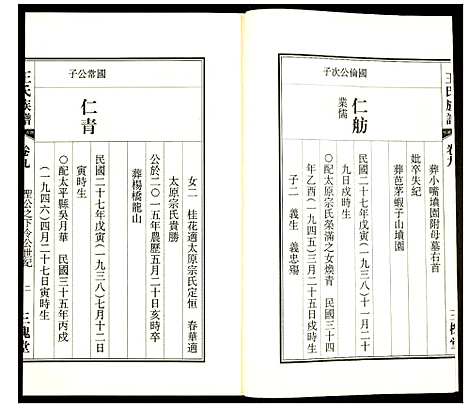 王氏族譜
卷九
三槐堂
葬小嘴墳園附母墓右首
妣卒失紀
葬芭茅蝦子山墳園
國倫公次子
仁舫
業儒
民國二十七年戊寅(一九三八)十一月二十
九日戌時生
〇配太原宗氏榮滿之女煥青 民國三十四
年乙酉(一九四五)三月二十五日戌時生
子二 義生 義忠殤
女二 桂花適太原宗氏定恒 春華適
太原宗氏貴勝
公於二〇一五年農歷五月二十日亥時卒
葬楊橋龍山
國常公子
仁青
民國二十七年戊寅(一九三八)七月十二日
寅時生
〇配太平縣吳月華 民國三十五年丙戌
(一九四六)四月二十七日寅時生
王氏族譜
卷九
聖公之下令公世紀
三槐堂